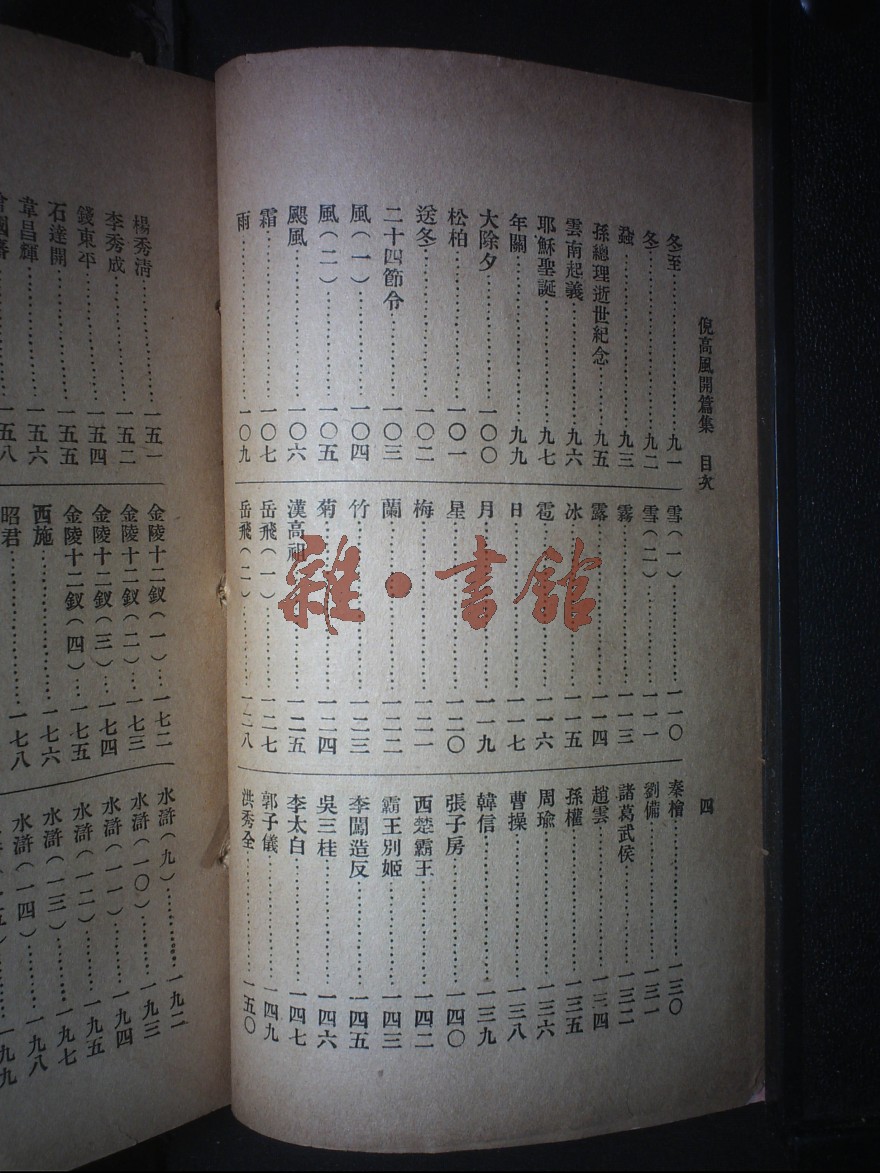 倪高風開篇集 目次
四
冬至……九一
冬……九二
蝨……九三
孫總理逝世紀念……九五
雲南起義……九六
耶穌聖誕……九七
年關……九九
大除夕……一〇〇
松柏……一〇一
送冬……一〇二
二十四節令……一〇三
風（一）……一〇四
風（二）……一〇五
颶風……一〇六
霜……一〇七
雨……一〇九
雪（一）……一一〇
雪（二）……一一一
霧……一一三
露……一一四
冰……一一五
雹……一一六
日……一一七
月……一一九
星……一二〇
梅……一二一
蘭……一二二
竹……一二三
菊……一二四
漢高祖……一二五
岳飛（一）……一二七
岳飛（二）……一二八
秦檜……一三〇
劉備……一三一
諸葛武侯……一三二
趙雲……一三四
孫權……一三五
周瑜……一三六
曹操……一三八
韓信……一三九
張子房……一四〇
西楚霸王……一四二
霸王別姬……一四三
李闖造反……一四五
吳三桂……一四六
李太白……一四七
郭子儀……一四九
洪秀全……一五〇
雜·書館
楊秀清……一五一
李秀成……一五二
錢東平……一五四
石達開……一五五
韋昌輝……一五六
曾國藩……一五八
金陵十二釵（一）……一七二
金陵十二釵（二）……一七三
金陵十二釵（三）……一七四
金陵十二釵（四）……一七五
西施……一七六
昭君……一七八
水滸（九）……一九二
水滸（一〇）……一九三
水滸（一一）……一九四
水滸（一二）……一九五
水滸（一三）……一九七
水滸（一四）……一九八
一九九